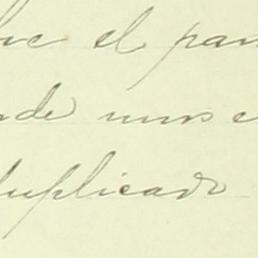 el par
de unos e
duplicado